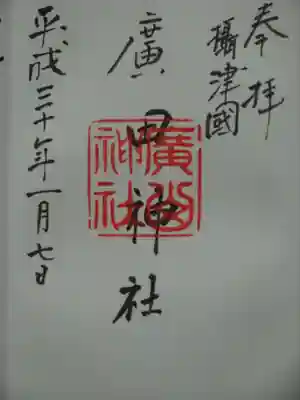 奉拝
攝津國
廣田神社
廣田
神社
平成三十年一月七日